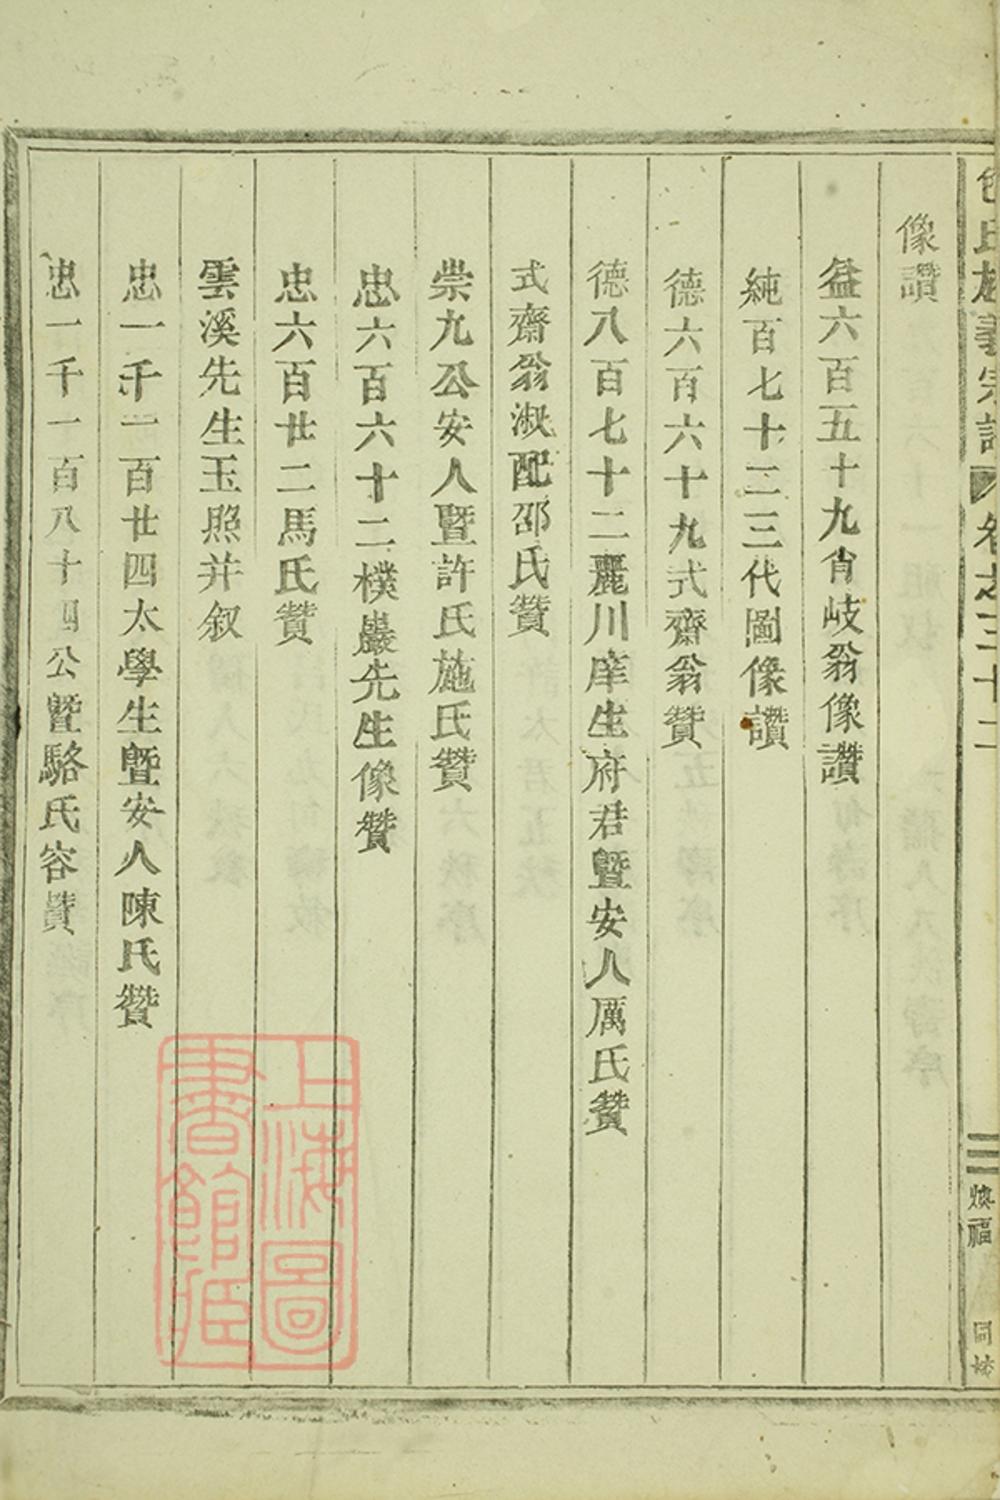 像讚
益六百五十九肖岐翁像讚
純百七十二三代圖像讚
德六百六十九式齋翁贊
德八百七十二麗川庠生府君暨安人厲氏贊
式齋翁淑配邵氏贊
崇九公安人暨許氏施氏贊
忠六百六十二樸巖先生像贊
忠六百廿二馬氏贊
雲溪先生玉照并叙
忠一千一百廿四太學生暨安人陳氏贊
忠一千一百八十四公暨駱氏容贊
宗譜 卷之三十二
三
煥福
同
上海圖書館